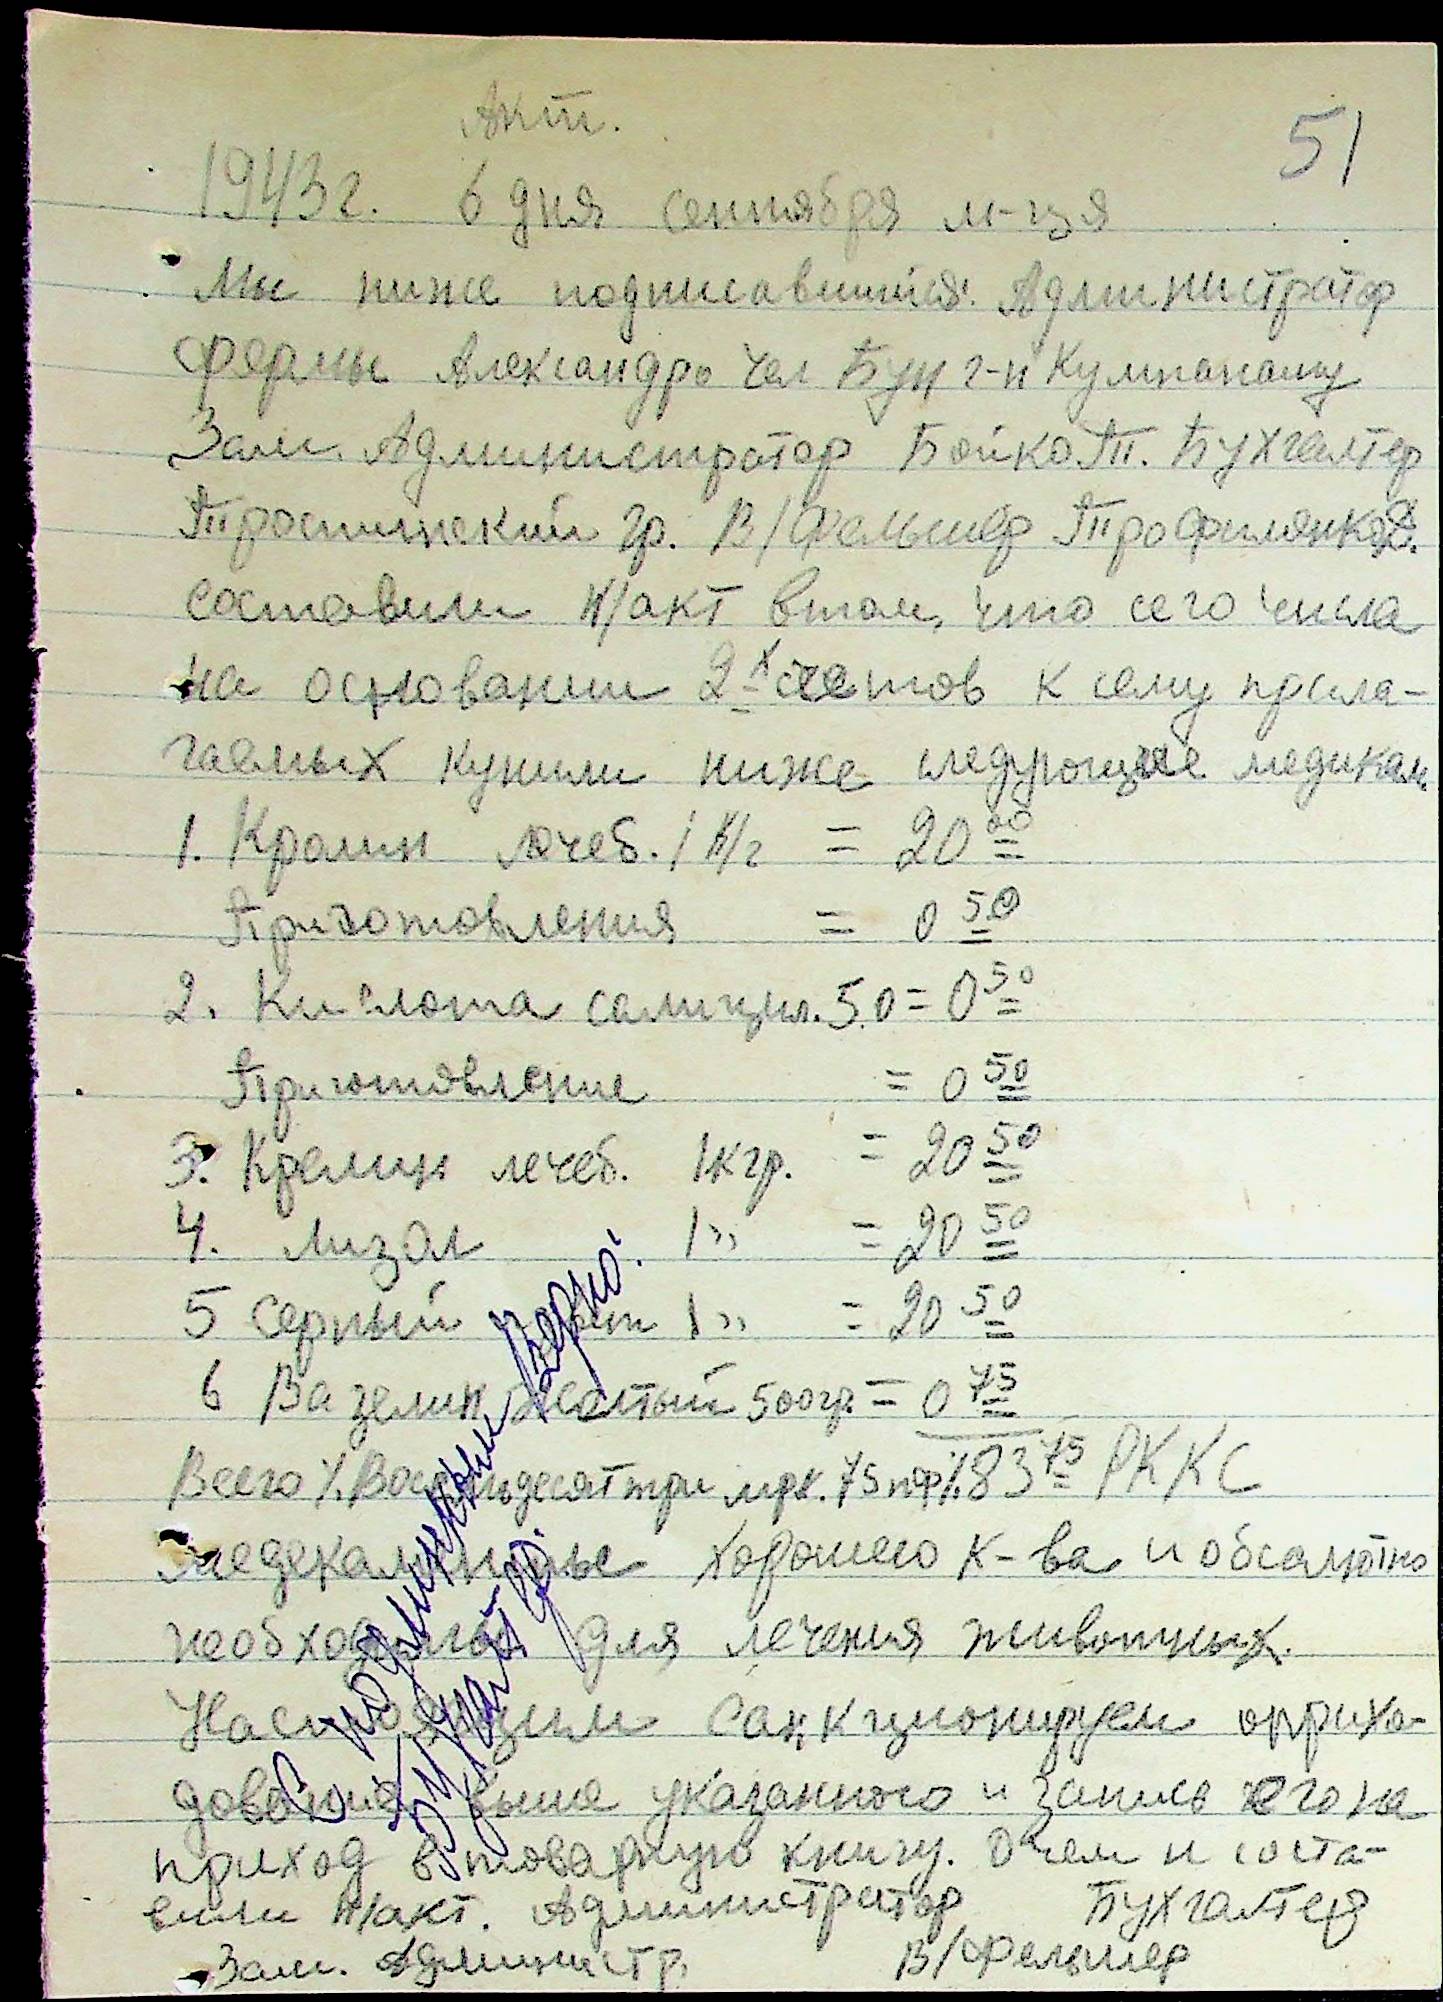 Акт.
51
1943г. 6 дня сентября м-ця
Мы ниже подписавшийся: Администратор
фермы Александро чел Бун г-н Кумпанашу
Зам. Администратор Бойко Т. Бухгалтер
Тростинский Гр. В/Фельшер Трофимянко
составили н/акт втом, что сего числа
на основании 2-х счетов к сему прила-
гаемых купили ниже следующие медикам.
1. Кролин лечеб. 1 к/г = 20 00
Приготовления = 0 50
2. Кислота салицил. 5.0 = 0 50
Приготовление = 0 50
3. Крелин лечеб. 1кгр. = 20 50
4. Лизол 1 " = 20 50
5 Серный 1 " = 20 50
6 Вазелин желтый 500гр. = 0 75
Всего /. Восемьдесят три мрк. 75 пф /. 83 75 РККС
медекаменты хорошего к-ва и обсалютно
необходимы для лечения животных.
Настоящим санкционируем оприхо-
дование выше указанного и запись его на
приход в товарную книгу. О чем и соста-
вили н/акт. Администратор Бухгалтер
Зам. Администр. В/Фельшер
С подлинным верно: